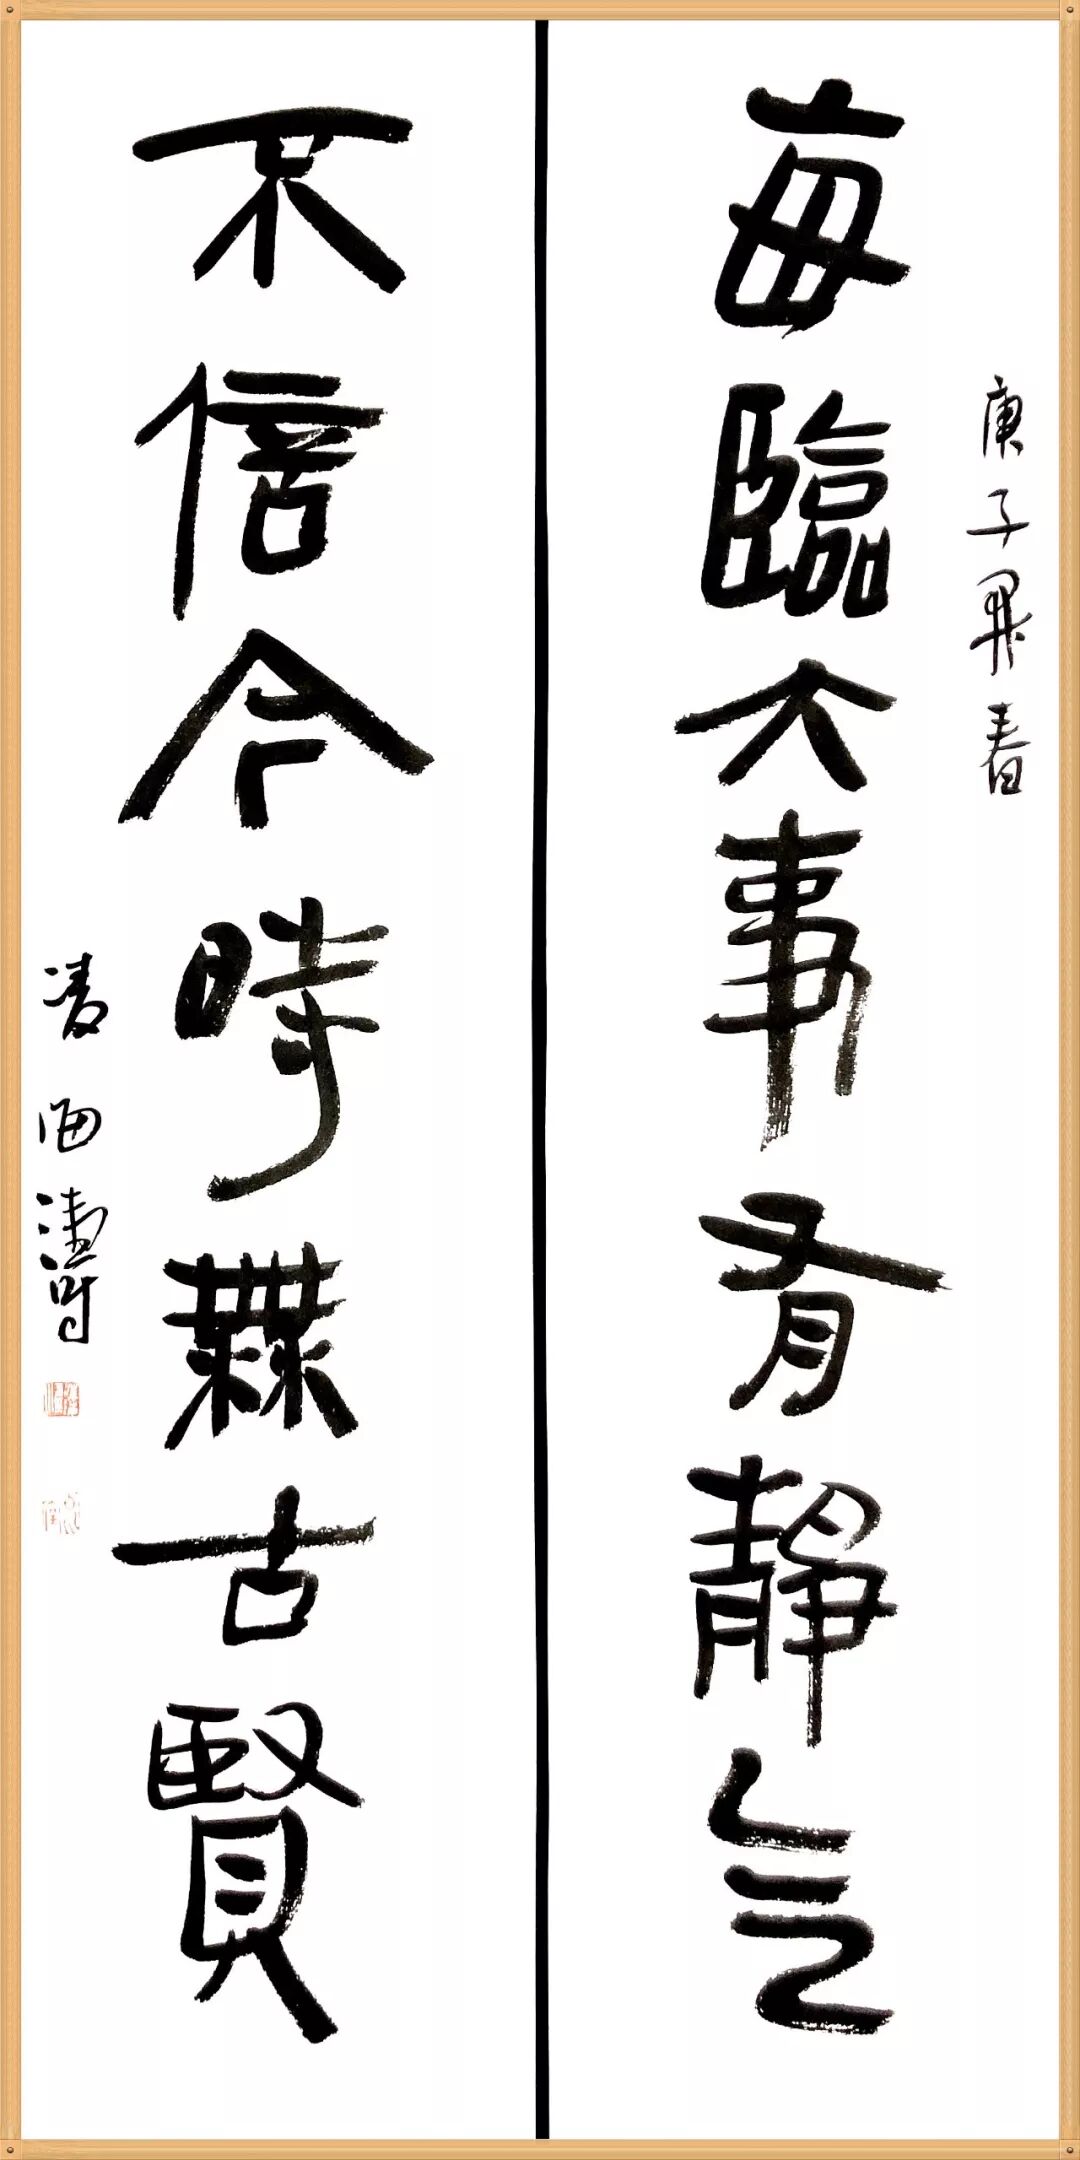 庚子開春
每臨大事有靜氣
不信今時無古賢
凌海濤